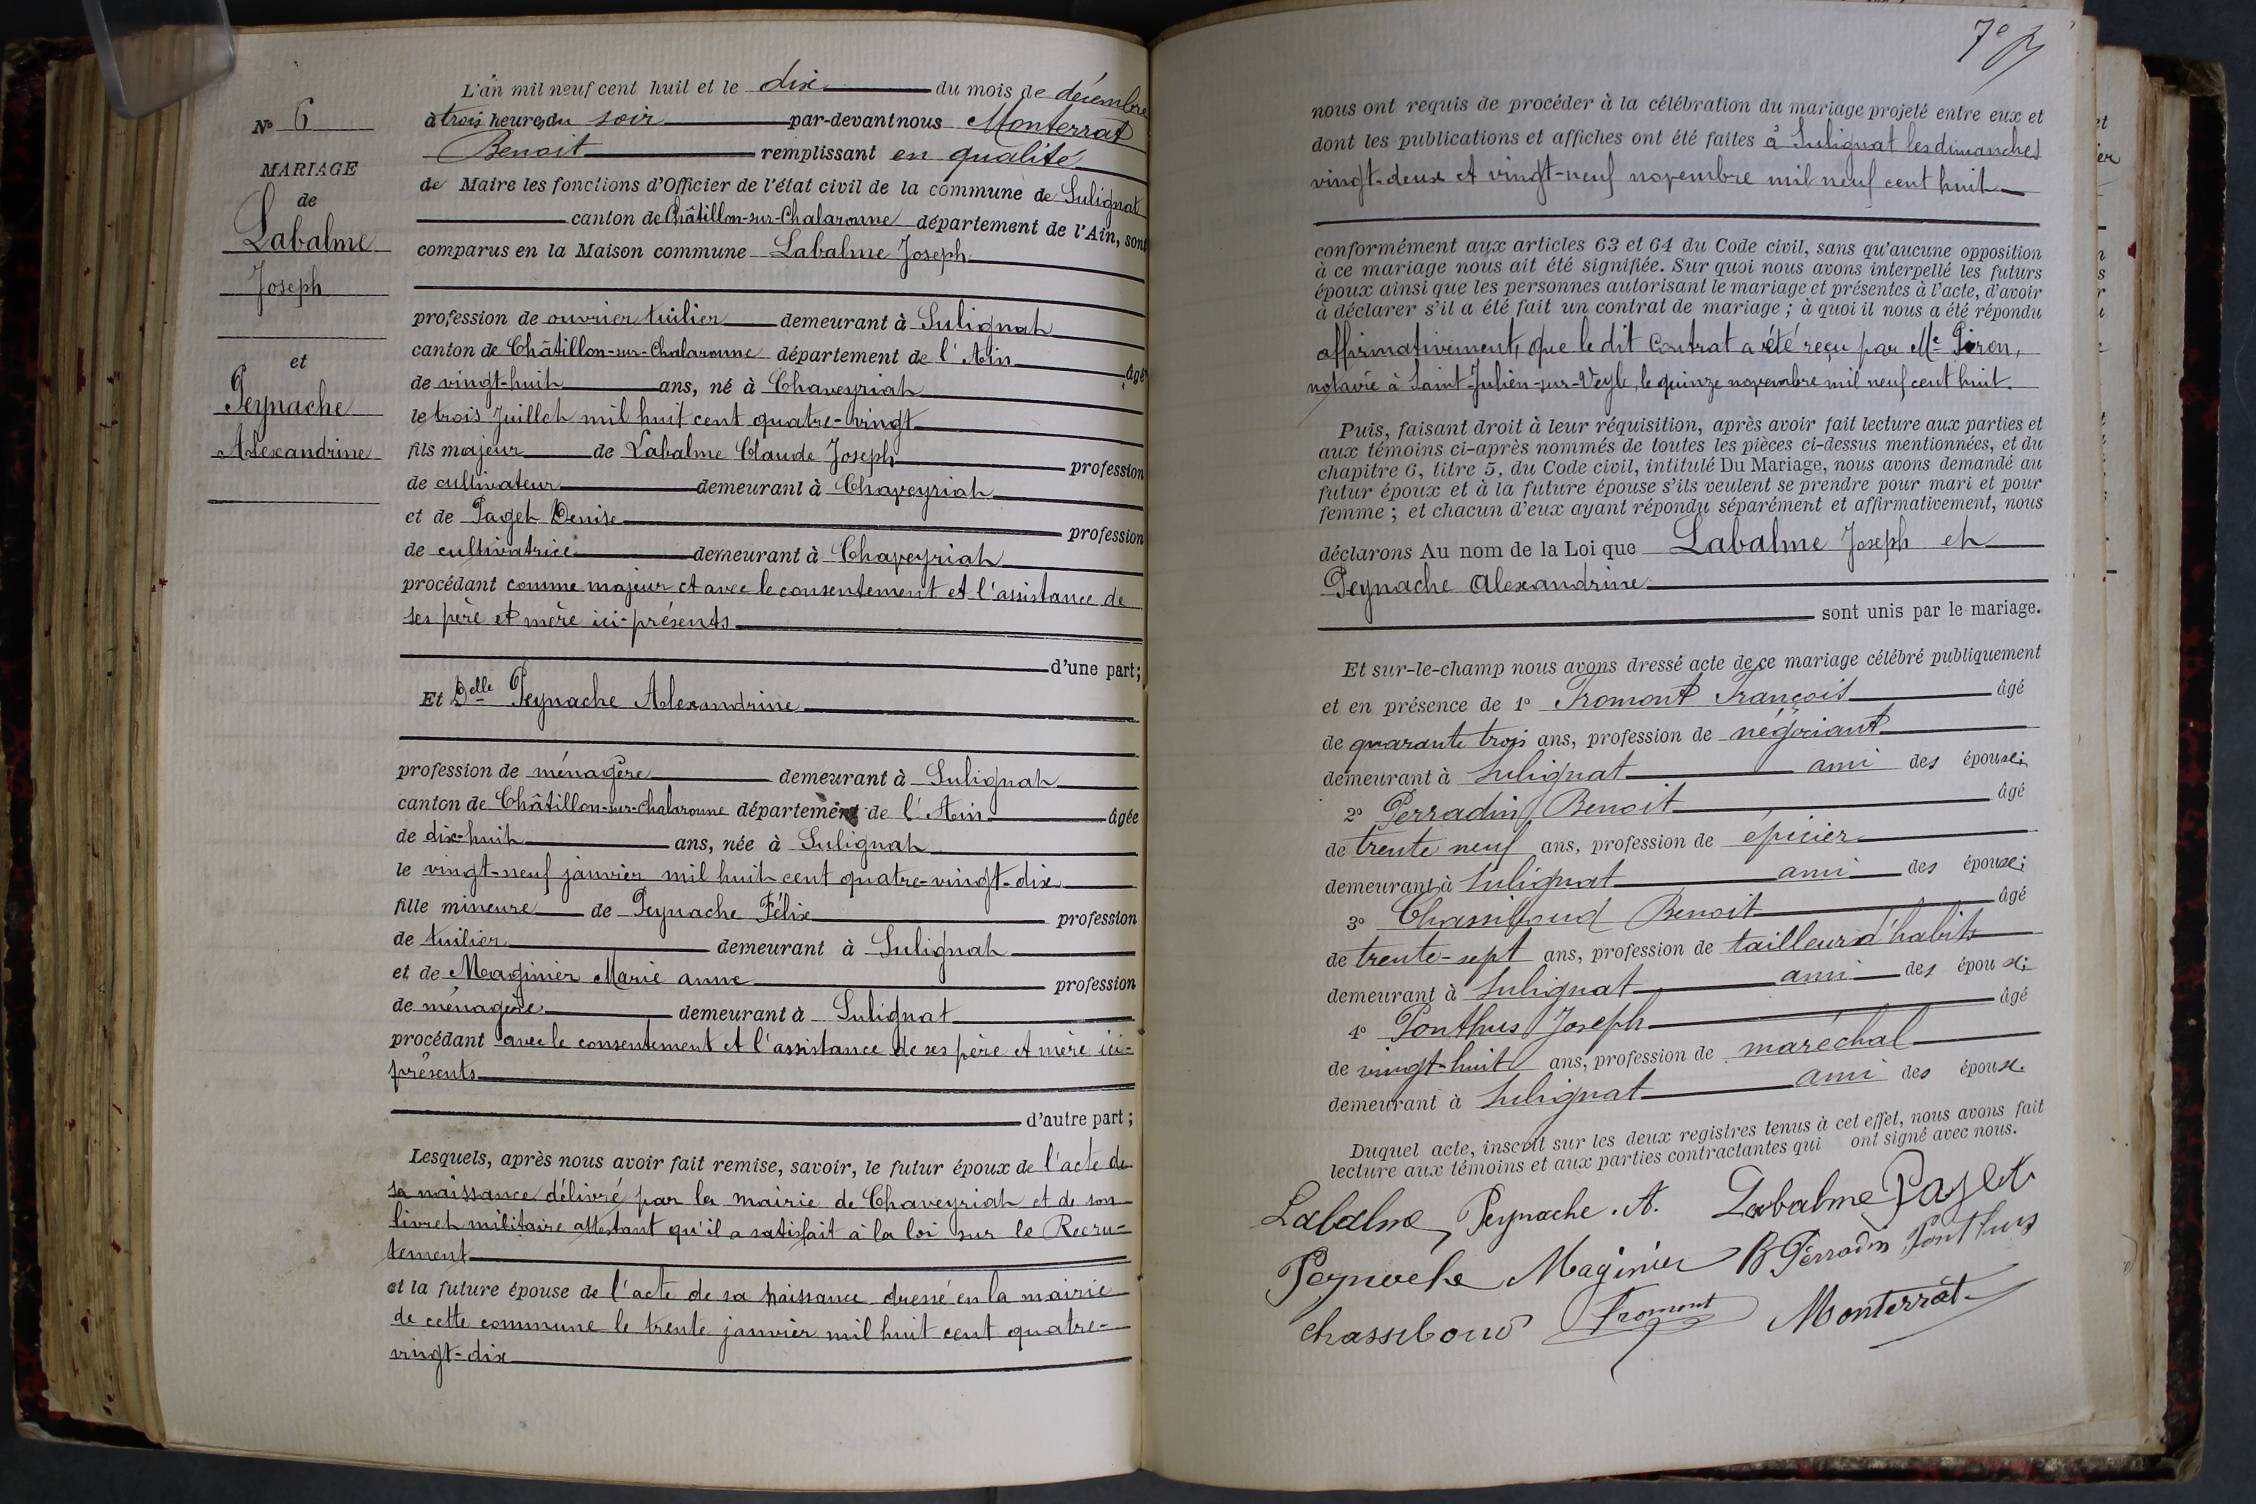 L'an mil neuf cent huit et le dix du mois de décembre
à trois heures du soir par-devant nous Monterrat
Benoit remplissant en qualité
de Maire les fonctions d'Officier de l'état civil de la commune de Sulignat
canton de Châtillon-sur-Chalaronne département de l'Ain, sont
comparus en la Maison commune Labalme Joseph
N° 6
MARIAGE
de
Labalme
Joseph
et
Peynache
Alexandrine
profession de ouvrier tuilier demeurant à Sulignat
canton de Châtillon-sur-Chalaronne département de l'Ain âgé
de vingt-huit ans, né à Chaveyriat
le trois Juillet mil huit cent quatre-vingt
fils majeur de Labalme Claude Joseph profession
de cultivateur demeurant à Chaveyriat
et de Paget Denise profession
de cultivatrice demeurant à Chaveyriat
procédant comme majeur et avec le consentement et l'assistance de
ses père et mère ici-présents
d'une part;
Et Delle Peynache Alexandrine
profession de ménagère demeurant à Sulignat
canton de Châtillon-sur-Chalaronne département de l'Ain âgée
de dix-huit ans, née à Sulignat
le vingt-neuf janvier mil huit cent quatre-vingt-dix
fille mineure de Peynache Félix profession
de tuilier demeurant à Sulignat
et de Maginier Marie anne profession
de ménagère demeurant à Sulignat
procédant avec le consentement et l'assistance de ses père et mère ici-
présents
d'autre part;
Lesquels, après nous avoir fait remise, savoir, le futur époux de l'acte de
sa naissance délivré par la mairie de Chaveyriat et de son
livret militaire attestant qu'il a satisfait à la loi sur le Recru-
tement
et la future épouse de l'acte de sa naissance dressé en la mairie
de cette commune le trente janvier mil huit cent quatre-
vingt-dix
nous ont requis de procéder à la célébration du mariage projeté entre eux et
dont les publications et affiches ont été faites à Sulignat les dimanches
vingt-deux et vingt-neuf novembre mil neuf cent huit
conformément aux articles 63 et 64 du Code civil, sans qu'aucune opposition
à ce mariage nous ait été signifiée. Sur quoi nous avons interpellé les futurs
époux ainsi que les personnes autorisant le mariage et présentes à l'acte, d'avoir
à déclarer s'il a été fait un contrat de mariage; à quoi il nous a été répondu
affirmativement, que le dit Contrat a été reçu par Me Piron,
notaire à Saint-Julien-sur-Veyle, le quinze novembre mil neuf cent huit.
Puis, faisant droit à leur réquisition, après avoir fait lecture aux parties et
aux témoins ci-après nommés de toutes les pièces ci-dessus mentionnées, et du
chapitre 6, titre 5, du Code civil, intitulé Du Mariage, nous avons demandé au
futur époux et à la future épouse s'ils veulent se prendre pour mari et pour
femme; et chacun d'eux ayant répondu séparément et affirmativement, nous
déclarons Au nom de la Loi que Labalme Joseph et
Peynache Alexandrine
sont unis par le mariage.
Et sur-le-champ nous avons dressé acte de ce mariage célébré publiquement
et en présence de 1° Fromont François âgé
de quarante trois ans, profession de négociant
demeurant à Sulignat ami des époux;
2° Perradin Benoit âgé
de trente neuf ans, profession de épicier
demeurant à Sulignat ami des époux;
3° Chassiboud Benoit âgé
de trente-sept ans, profession de tailleur d'habits
demeurant à Sulignat ami des époux;
4° Ponthus Joseph âgé
de vingt-huit ans, profession de maréchal
demeurant à Sulignat ami des époux.
Duquel acte, inscrit sur les deux registres tenus à cet effet, nous avons fait
lecture aux témoins et aux parties contractantes qui ont signé avec nous.
Labalme Peynache . A. Labalme Paget
Peynache Maginier B Perradin Ponthus
chassiboud Fromont Monterrat